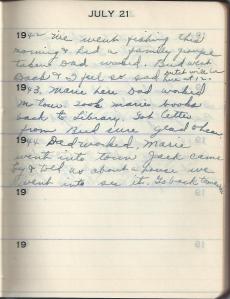 JULY 21
1942 We went fishing this
morning & had a family group
taken Dad worked. Bud went
Back & I feel so sad
at 12.
1943. Marie here Dad worked
in town took maries books
back to Library. Got letter
from Bud sure glad to hear
1944 Dad worked, Marie
went into town Jack came
by & told us about a house we
went into see it. Go back
19
19